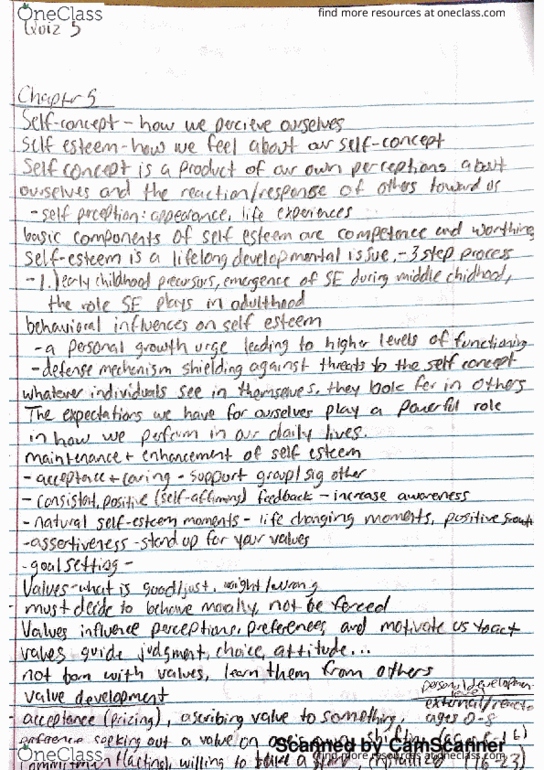 OneClass
find more resources at oneclass.com
Quiz 5
Chapter 5
Self-concept - how we percieve ourselves
self esteem - how we feel about our self-concept
Self concept is a product of our own perceptions about
ourselves and the reaction/response of others toward us
- self perception: appearance, life experiences
basic components of self esteem are competence and worthing
self-esteem is a lifelong developmental issue, - 3 step process
- 1.) early childhood precursors, emergence of SE during middle chidhood,
the role SE plays in adulthood
behavioral influences on self esteem
- a personal growth urge leading to higher levels of functioning
- defense mechanism shielding against threats to the self concept
whatever individuals see in themselves, they look for in others
The expectations we have for ourselves play a powerful role
in how we perform in our daily lives.
maintenance + enhancement of self esteem
- acceptance + caring - support group/sig other
- consistent, positive (self-affirming) feedback - increase awareness
- natural self-esteem moments - life changing moments, positive growth
- assertiveness - stand up for your values
- goal setting -
Values - what is good/just, right/wrong
- must decide to behave morally, not be forced
Values influence perceptions, preferences, and motivate us to act
values guide judgment, choice, attitude...
not born with values, learn them from others
value development
personal/developmen
external/reacto
- acceptance (prizing), ascribing value to something, ages 0-8
preference seeking out a value on
Scanned by CamScanner
OneClass
find more resources at oneclass.com
commitment (acting), willing to take a